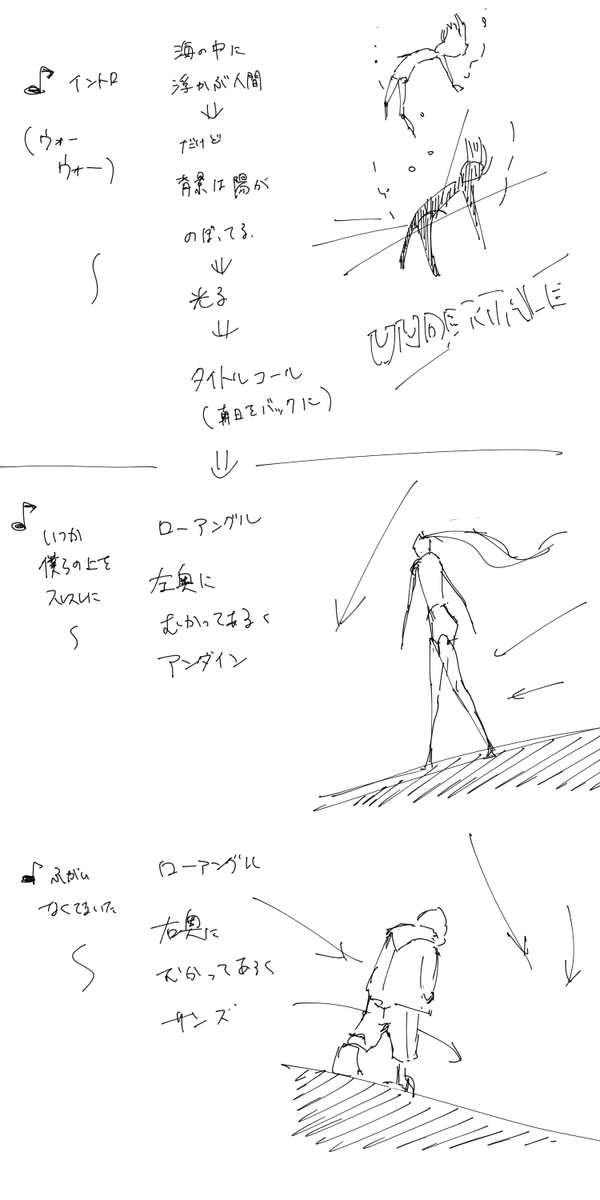 イントロ
(ウォー
ウォー)
海の中に
浮かぶ人間
⇓
だけど
背景は陽が
のぼってる.
⇓
光る
⇓
タイトルコール
(朝日をバックに)
⇓
UNDERTALE
いつか
僕らの上を
スレスレに
ローアングル
左奥に
むかってあるく
アンダイン
ふがい
なくてないた
ローアングル
右奥に
むかってあるく
サンズ